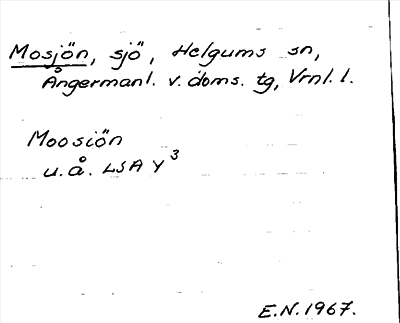 Mosjön, sjö, Helgums sn,
Ångermanl. v. doms. tg, Vrnl. l.
Moosiön
u.å. LSA Y³
E.N. 1967.